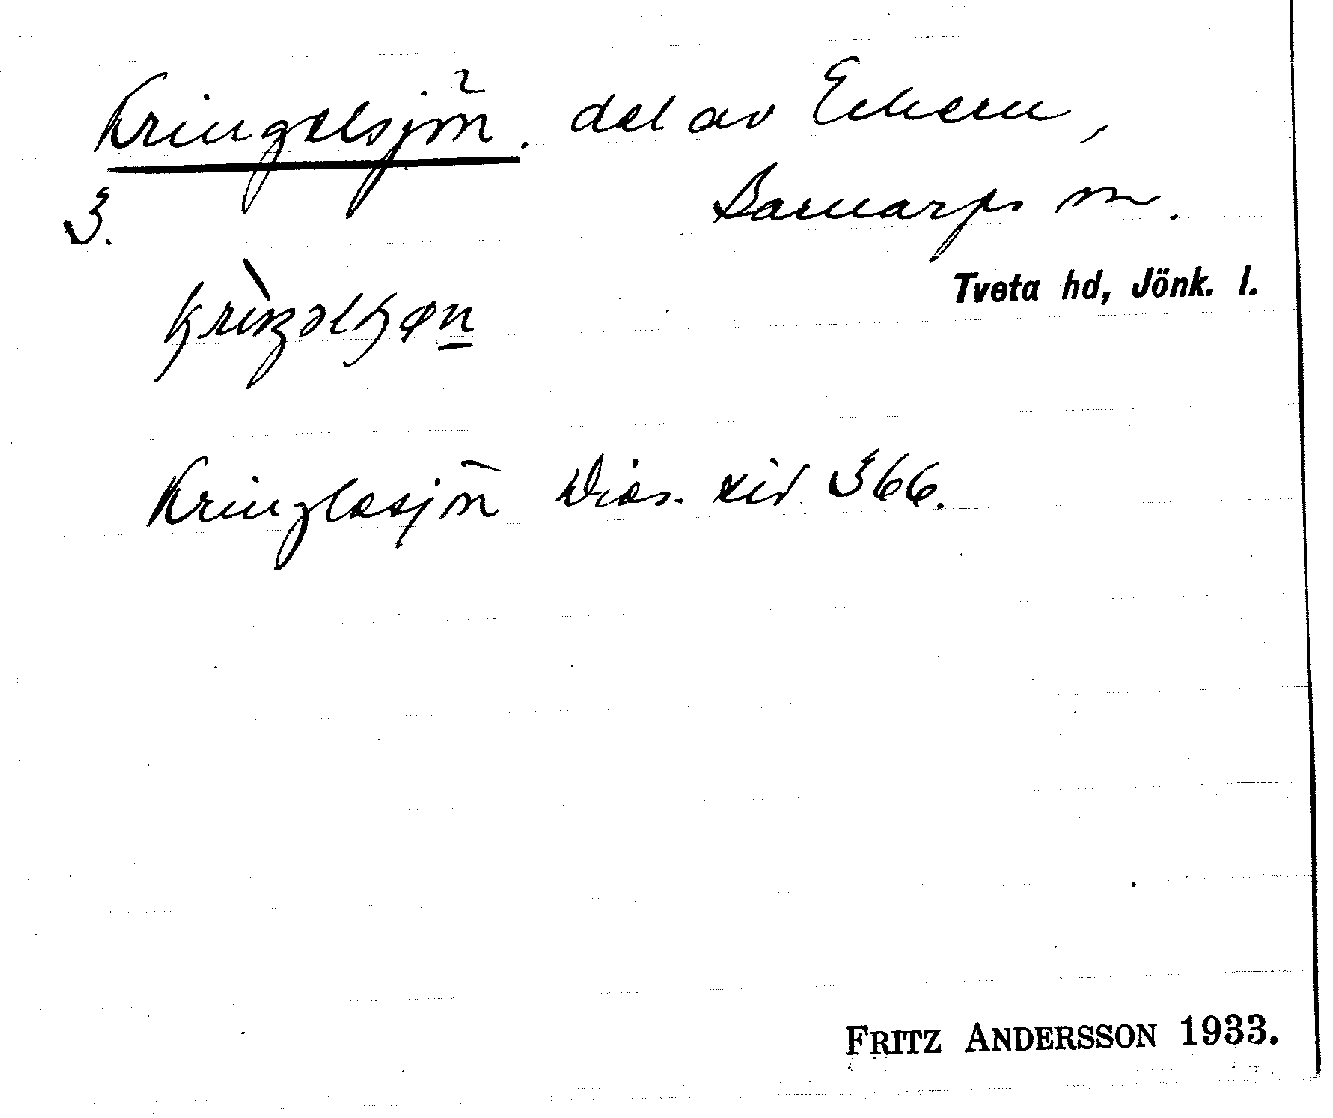 Kringelsjön. del av Eckern,
3. Barnarps sn.
Tveta hd, Jönk. l.
Kringlasjön 366.
FRITZ ANDERSSON 1933.